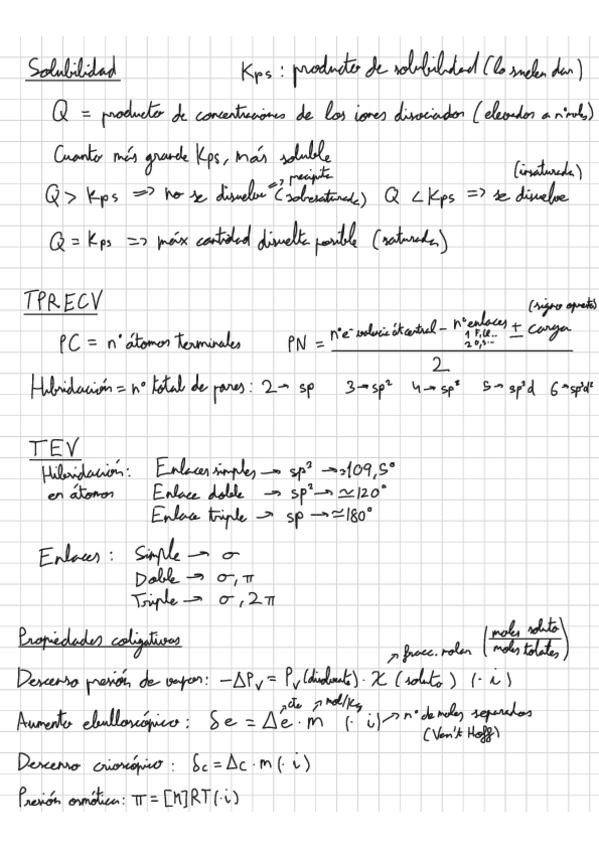 Solubilidad Kps : producto de solubilidad (lo suelen dar)
Q = producto de concentraciones de los iones disociados (elevados a nº mols)
Cuanto más grande Kps, más soluble
Q > Kps => no se disuelve => precipita (sobresaturada) Q < Kps => se disuelve (insaturada)
Q = Kps => máx cantidad disuelta posible (saturada)
TPRECV
PC = nº átomos terminales PN = nº e⁻ valencia át central - nº enlaces ± carga (signo opuesto)
1 F, Cl..
2 O, S...
2
Hibridación = nº total de pares: 2 → sp 3 → sp² 4 → sp³ 5 → sp³d 6 → sp³d²
TEV
Hibridación: Enlaces simples → sp³ → ≃109,5°
en átomos Enlace doble → sp² → ≃120°
Enlace triple → sp → ≃180°
Enlaces : Simple → σ
Doble → σ, π
Triple → σ, 2π
Propiedades coligativas
↗ fracc. molar (moles soluto / moles totales)
Descenso presión de vapor: -ΔPv = Pv (disolvente) · X (soluto) (· i)
↗ cte ↗ mol/kg
Aumento ebulloscópico : δe = Δe · m (· i) → nº de moles separados
(Van't Hoff)
Descenso crioscópico : δc = Δc · m (· i)
Presión osmótica: π = [M]RT (· i)